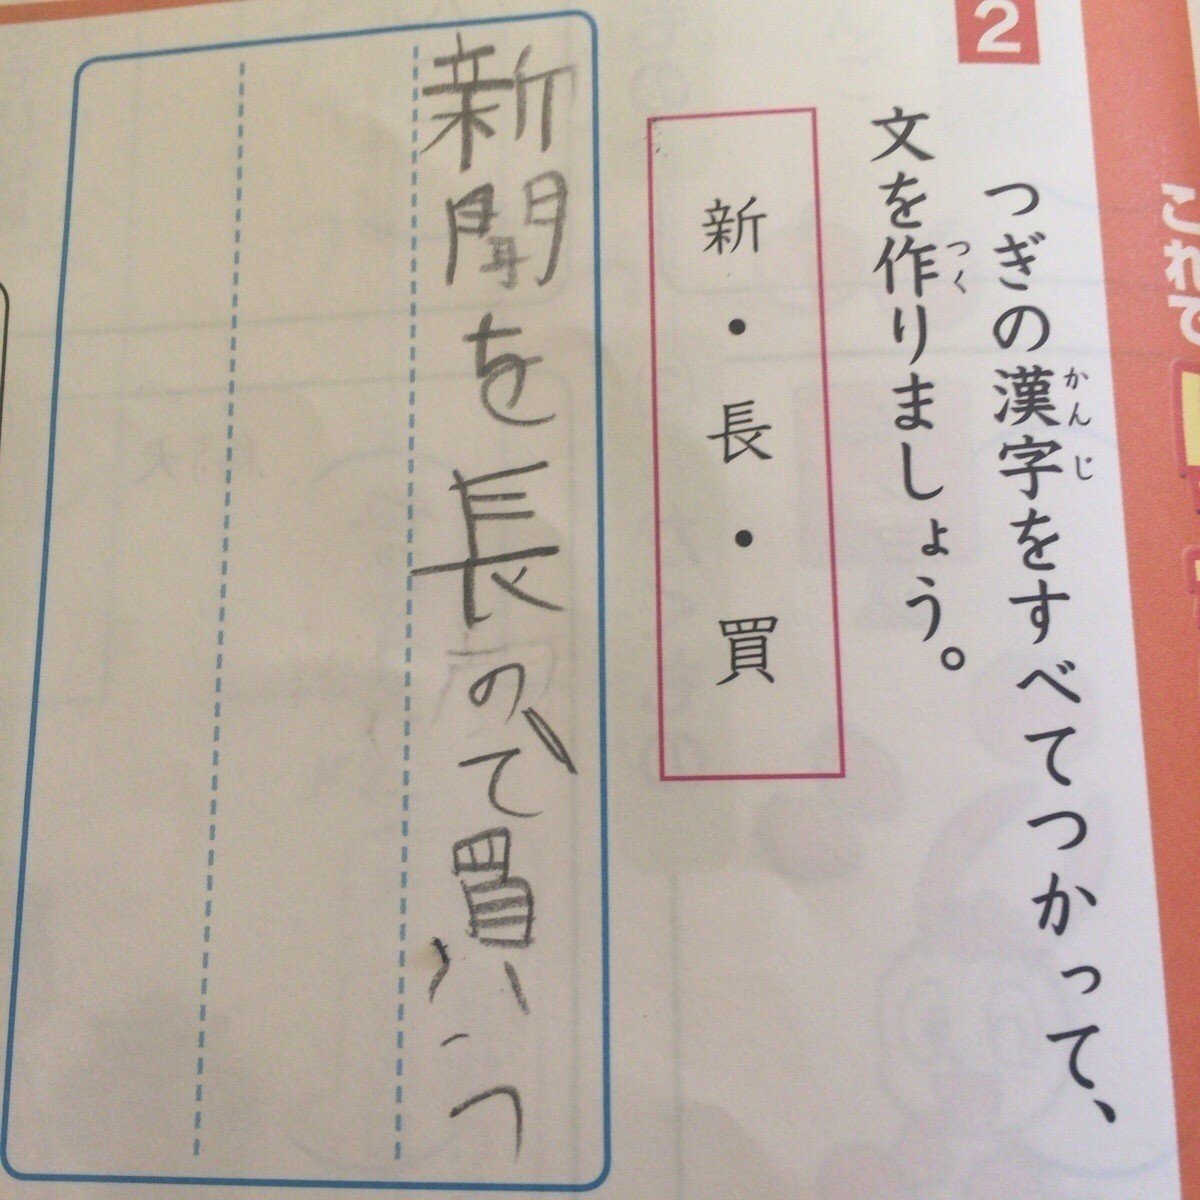 これで
2
つぎの漢字をすべてつかって、
かんじ
文を作りましょう。
つく
新・長・買
新聞を長ので買う